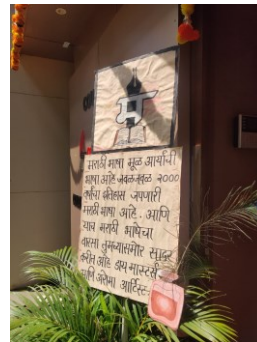 म
मराठी भाषा मूळ आर्यांची
भाषा आहे जवळजवळ २०००
वर्षांचा इतिहास जपणारी
मराठी भाषा आहे. आणि
याच मराठी भाषेचा
वारसा तुमच्यासमोर सादर
करीत आहे डाय मास्टर्स
आणि अरोमा आर्टिस्ट